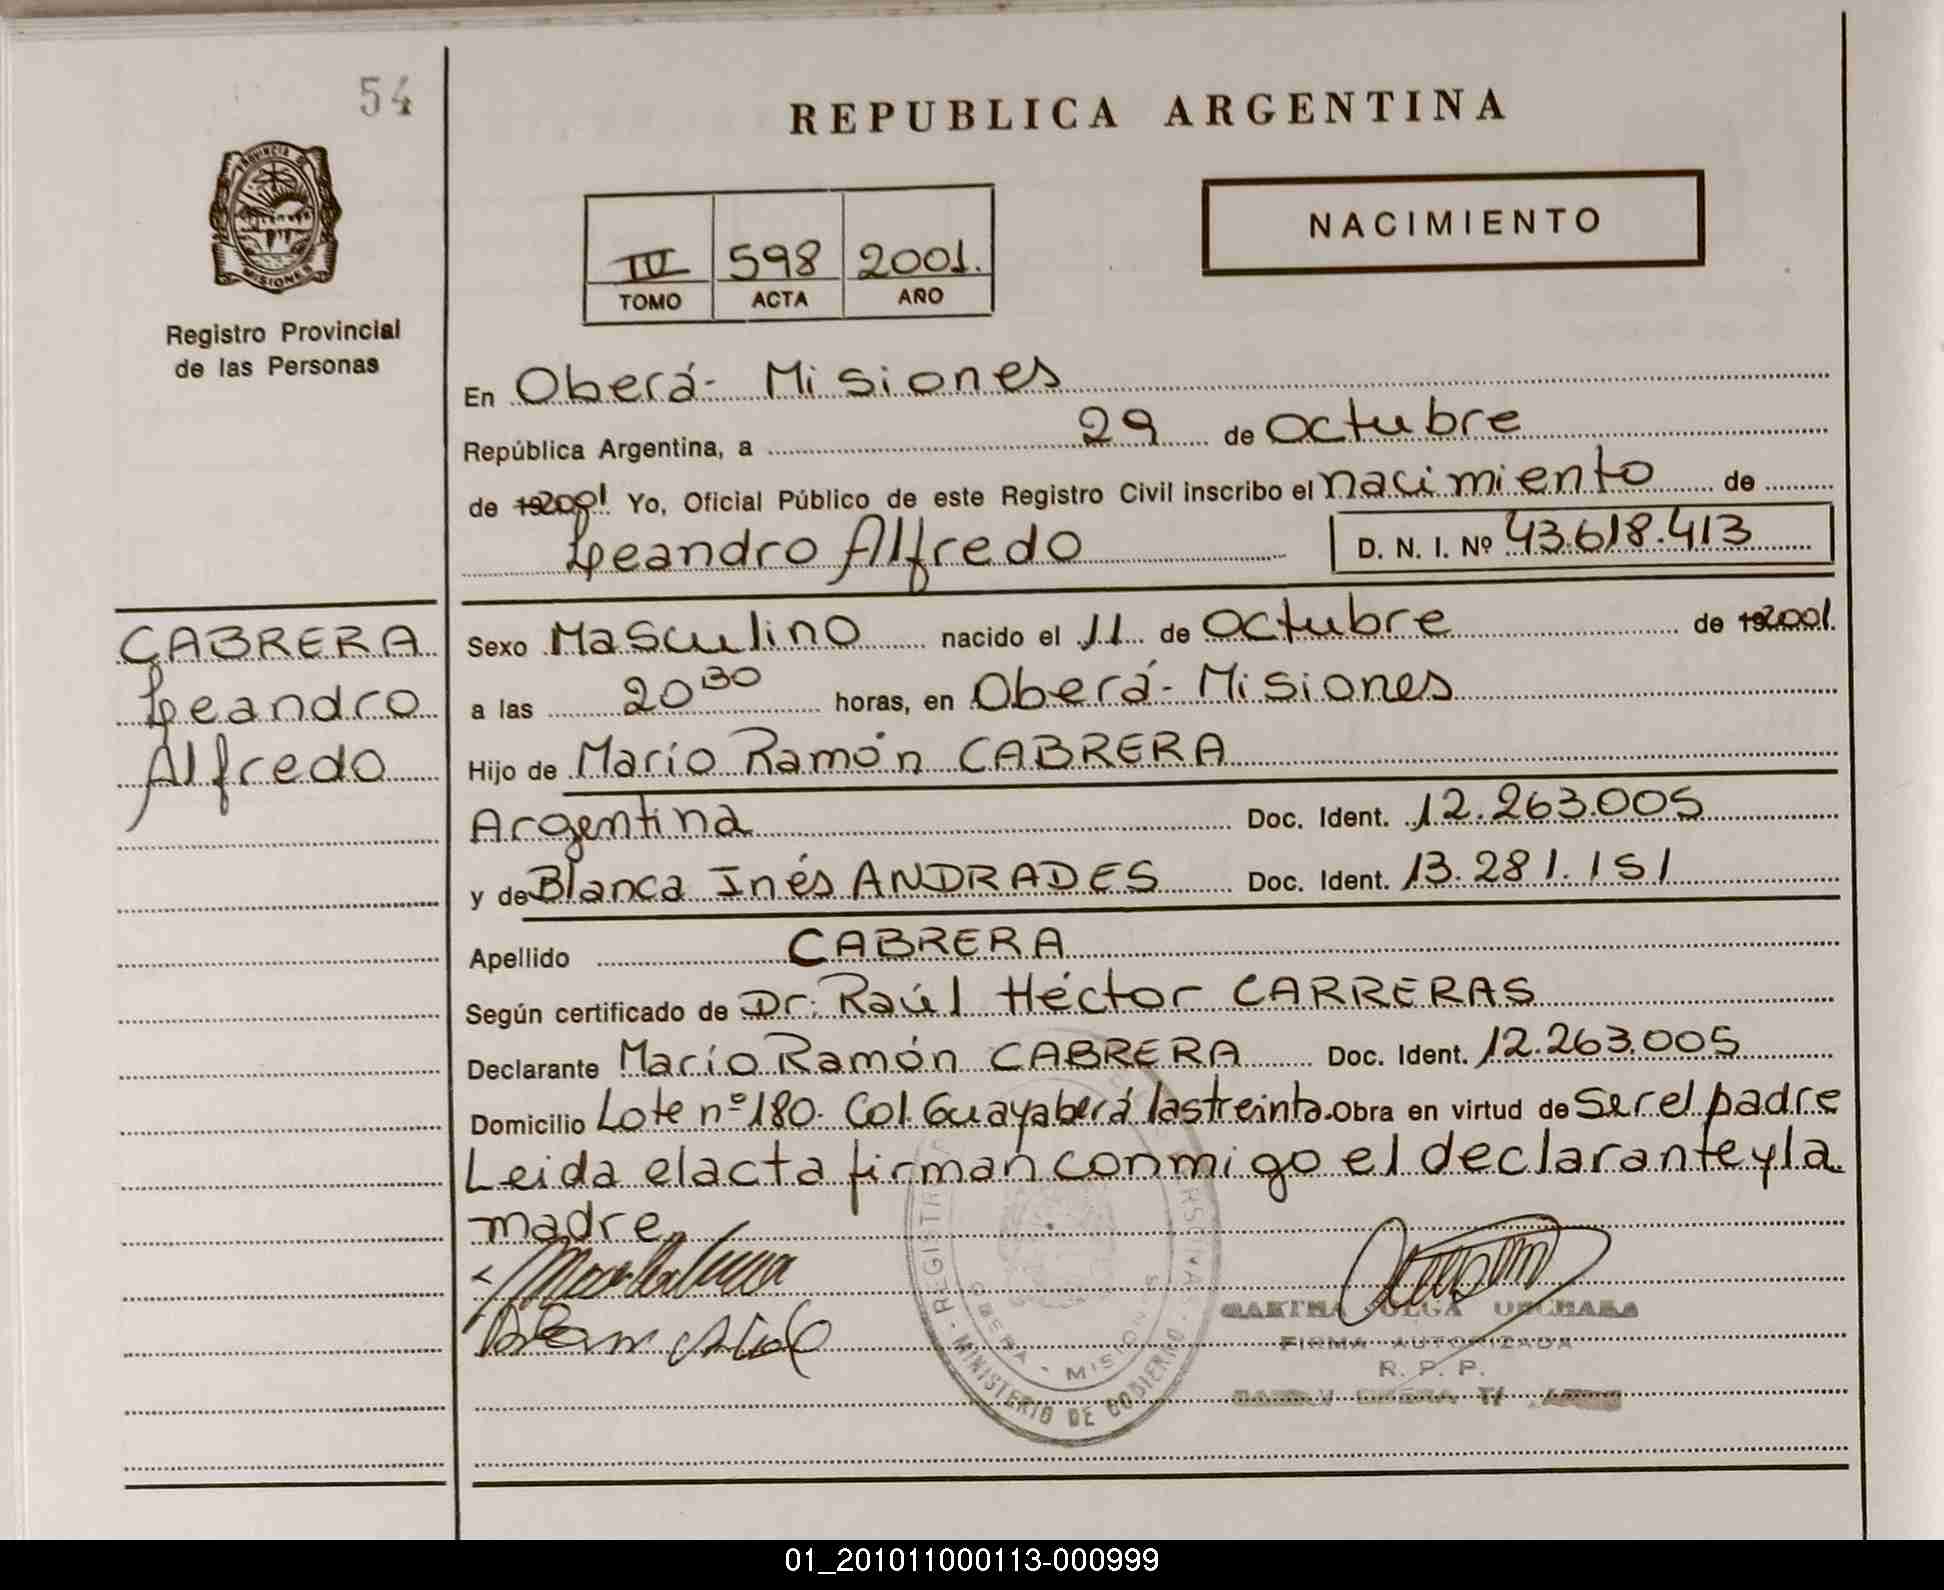 54
REPUBLICA ARGENTINA
PROVINCIA DE
MISIONES
Registro Provincial
de las Personas
NACIMIENTO
598 2001.
TOMO ACTA AÑO
En Oberá- Misiones
República Argentina, a 29 de Octubre
de 2001 Yo, Oficial Público de este Registro Civil inscribo el nacimiento de
Leandro Alfredo D. N. I. Nº 43.618.413
CABRERA
Leandro
Alfredo
Sexo Masculino nacido el 11 de Octubre de 2001.
a las 20 30 horas, en Oberá- Misiones
Hijo de Mario Ramón CABRERA
Argentina Doc. Ident. 12.263.005
y de Blanca Inés ANDRADES Doc. Ident. 13.281.151
Apellido CABRERA
Según certificado de Dr: Raúl Héctor CARRERAS
Declarante Mario Ramón CABRERA Doc. Ident. 12.263.005
Domicilio Lote nº 180. Col. Guayaberá las treinta. Obra en virtud de Ser el padre
Leida el acta firman conmigo el declarante y la
madre
MINISTERIO DE GOBIERNO
OBERA - MISIONES
MARTHA OLGA
FIRMA AUTORIZADA
R. P. P.
01_201011000113-000999